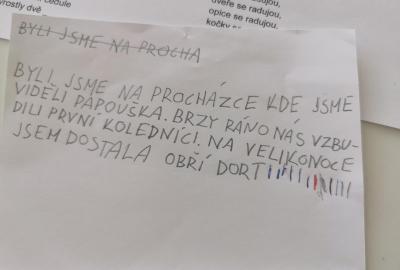 cedule
vrostly dvě
dveře se radujou,
opice se radujou,
kočky se
BYLI JSME NA PROCHA
BYLI JSME NA PROCHÁZCE KDE JSME
VIDĚLI PAPOUŠKA. BRZY RÁNO NÁS VZBU-
DILI PRVNÍ KOLEDNÍCI. NA VELIKONOCE
JSEM DOSTALA OBŘÍ DORT!!!!!!!!!!!!!